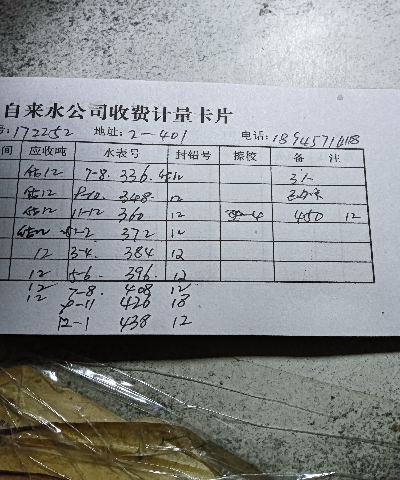 自来水公司收费计量卡片
号:172252 地址:2-401 电话:
间 应收吨 水表号 封铅号 擦校 备 注
估12 7-8. 336. 12 3人
估12 9-10. 348. 12
估12 11-12 360 12 450 12
估12 1-2 372 12
12 3-4. 384 12
12 5-6. 396. 12
12 7-8. 408 12
12 9-11 420 18
12-1 438 12